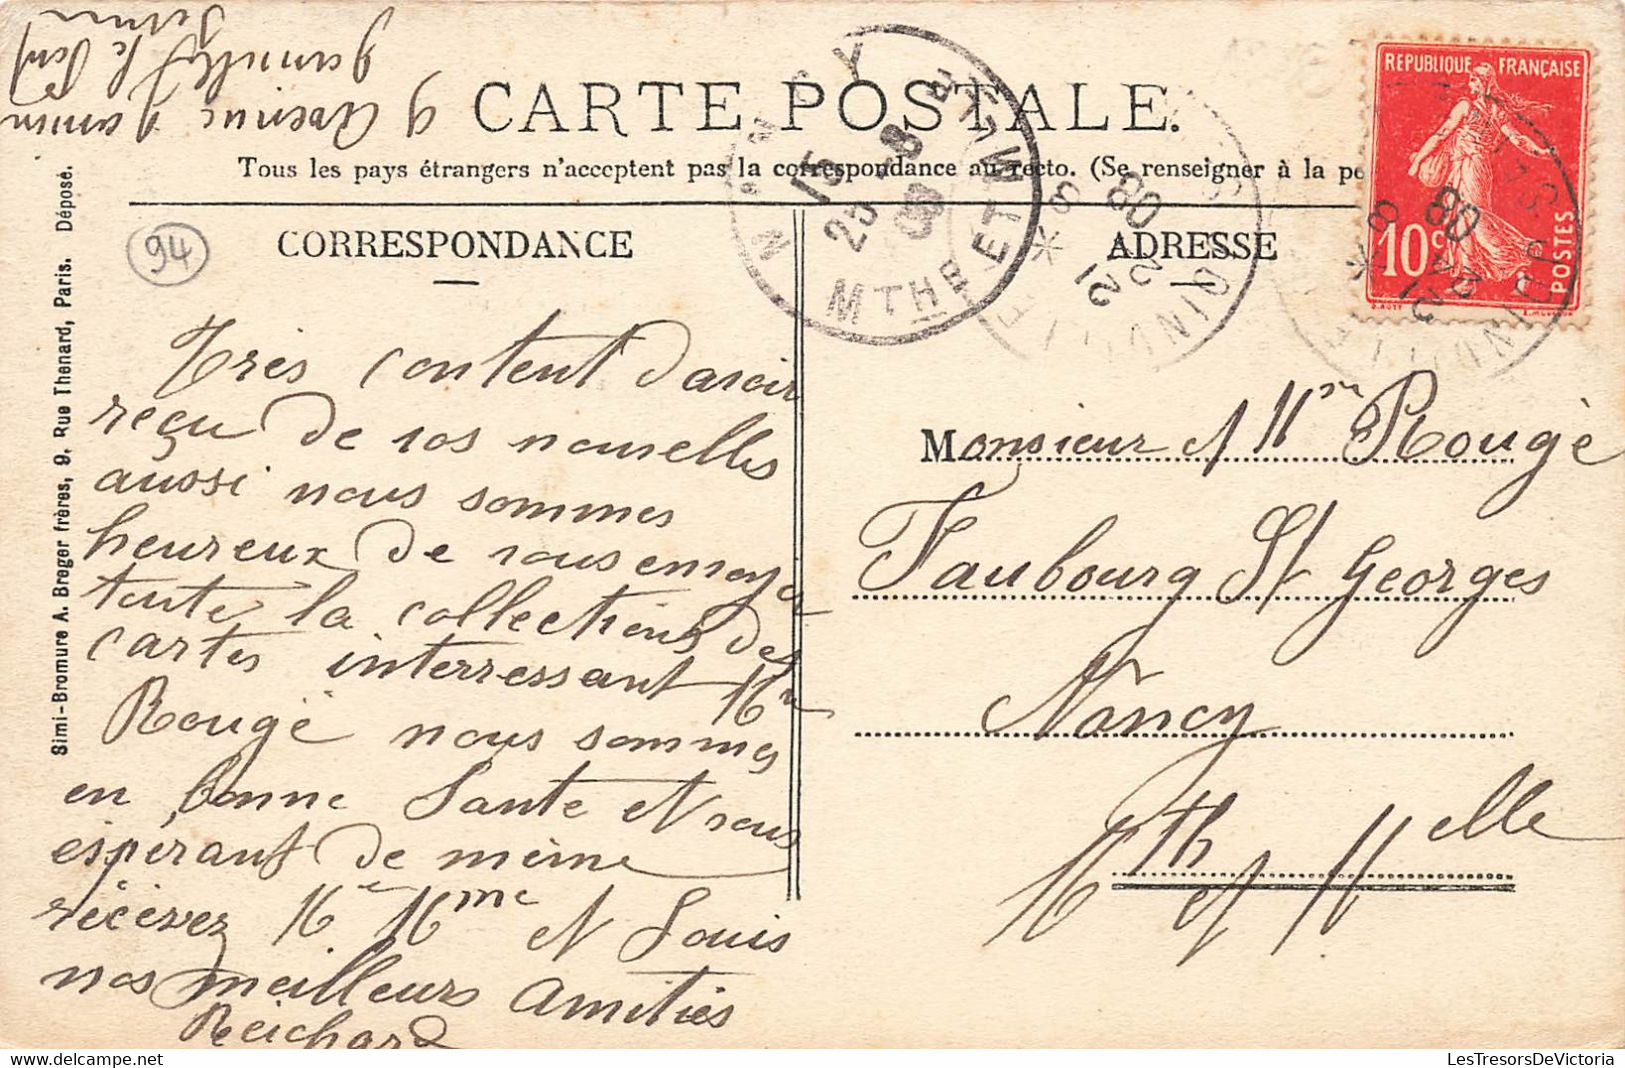 9 Avenue Jamin
Joinville le Pont
Seine
CARTE POSTALE
Tous les pays étrangers n'acceptent pas la correspondance au recto. (Se renseigner à la po
REPUBLIQUE FRANÇAISE
10c
POSTES
NANCY
15
25 -8
08
MTHE ET MLLE
12
24
8
08
CORRESPONDANCE
ADRESSE
94
Simi-Bromure A. Breger frères, 9, Rue Thenard, Paris. Déposé.
Très content d'avoir
reçu de vos nouvelles
aussi nous sommes
heureux de vous envoyer
toute la collections des
cartes interressant Mr
Rougé nous sommes
en bonne Santé et vous
espérant de même
récévez Mr Mme et Louis
nos meilleurs Amitiés
Reichard
Monsieur et Mme Rougé
Faubourg St Georges
Nancy
Mthe et Mlle
LesTresorsDeVictoria